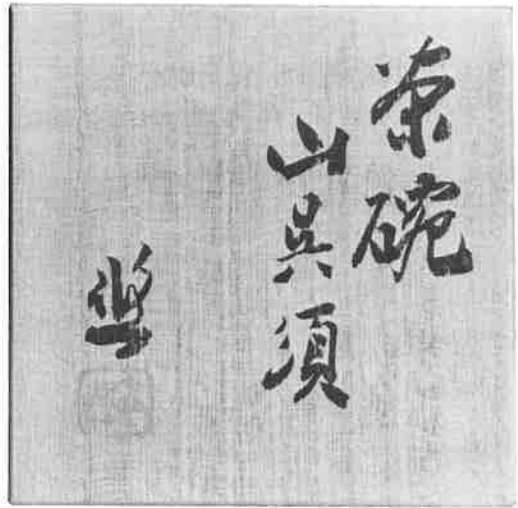 茶碗
山呉須